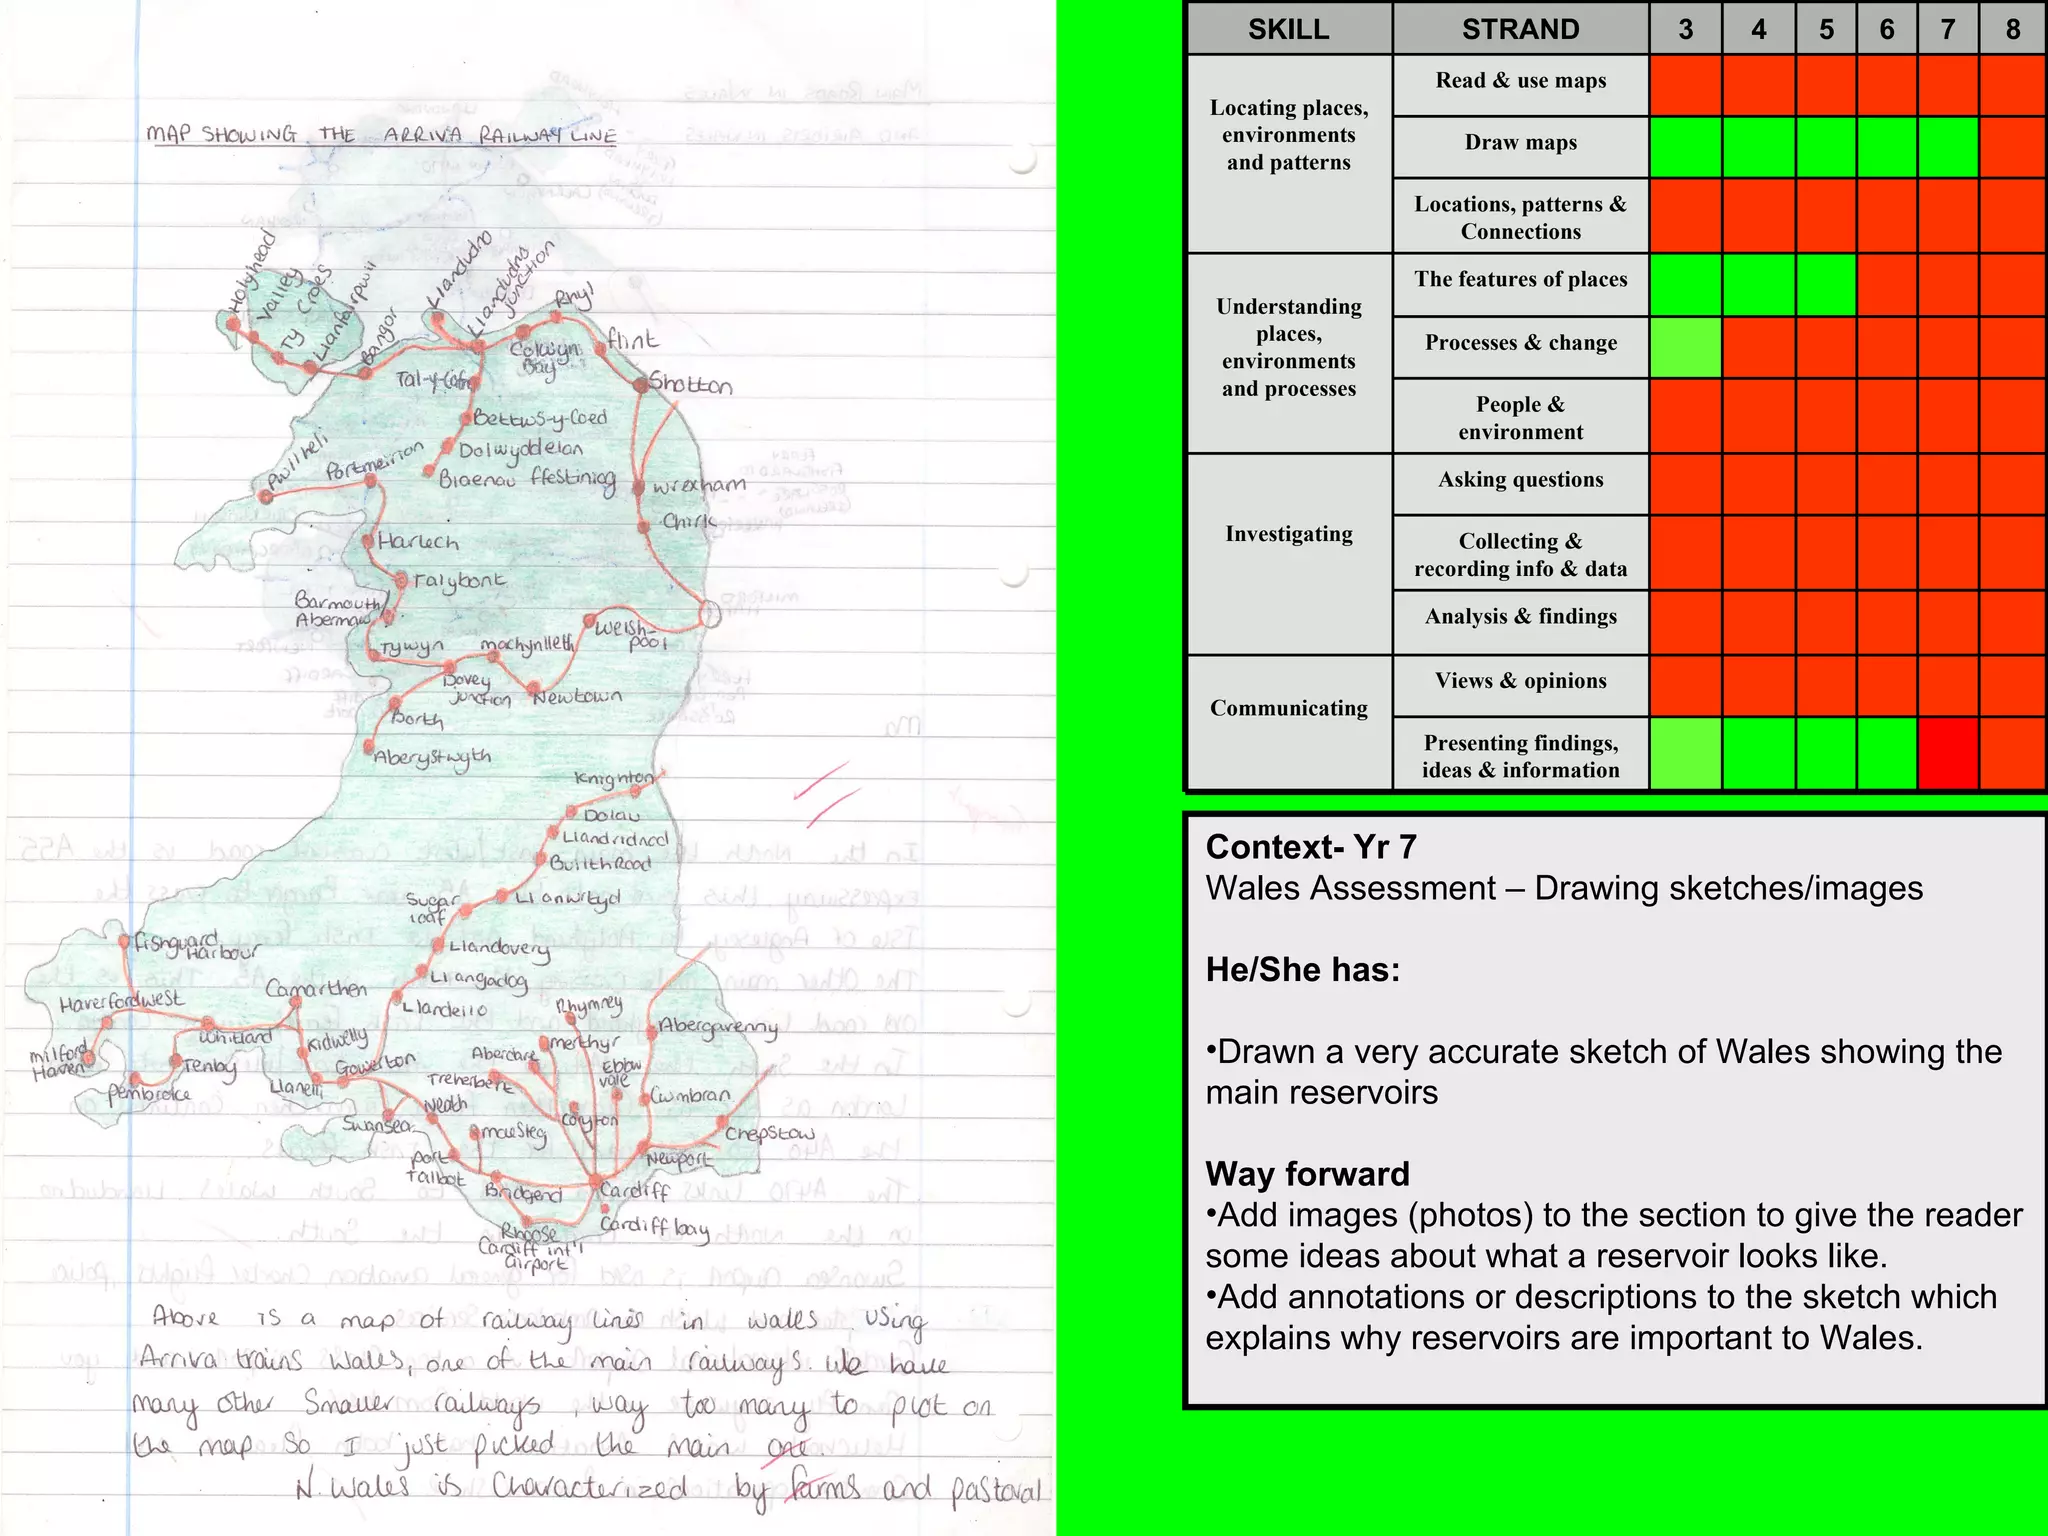 MAP SHOWING THE ARRIVA RAILWAY LINE
Holyhead
Valley
Ty Croes
Llanfairpwll
Bangor
Llandudno
Llandudno
junction
Rhyl
Colwyn
Bay
flint
Shotton
Tal-y-Cafn
Bettws-y-Coed
Dolwyddelan
Blaenau Ffestiniog
Pwllheli
Portmeirion
wrexham
Chirk
Harlech
Talybont
Barmouth/
Abermaw
Tywyn
machynlleth
Welsh-
pool
Dovey
junction
Newtown
Borth
Aberystwyth
Knighton
Dolau
Llandridnod
Builth Road
Llanwrtyd
Sugar
loaf
Llandovery
Llangadog
Llandeilo
Fishguard
Harbour
Haverfordwest
Camarthen
Whitland
Kidwelly
Gowerton
Milford
Haven
Tenby
Pembroke
Llanelli
Swansea
Neath
Port
Talbot
Maesteg
Bridgend
Treherbert
Aberdare
merthyr
Rhymney
Ebbw
Vale
Coryton
Abergavenny
Cwmbran
Chepstow
Newport
Cardiff
Cardiff bay
Rhoose
Cardiff int'l
airport
Above is a map of railway lines in wales, using
Arriva trains Wales, one of the main railways. We have
many other Smaller railways, way too many to plot on
the map so I just picked the main one.
N. Wales is Characterized by farms and pastoral
SKILL STRAND 3 4 5 6 7 8
Locating places,
environments
and patterns
Read & use maps
Draw maps
Locations, patterns &
Connections
Understanding
places,
environments
and processes
The features of places
Processes & change
People &
environment
Investigating
Asking questions
Collecting &
recording info & data
Analysis & findings
Communicating
Views & opinions
Presenting findings,
ideas & information
Context- Yr 7
Wales Assessment – Drawing sketches/images
He/She has:
•Drawn a very accurate sketch of Wales showing the
main reservoirs
Way forward
•Add images (photos) to the section to give the reader
some ideas about what a reservoir looks like.
•Add annotations or descriptions to the sketch which
explains why reservoirs are important to Wales.